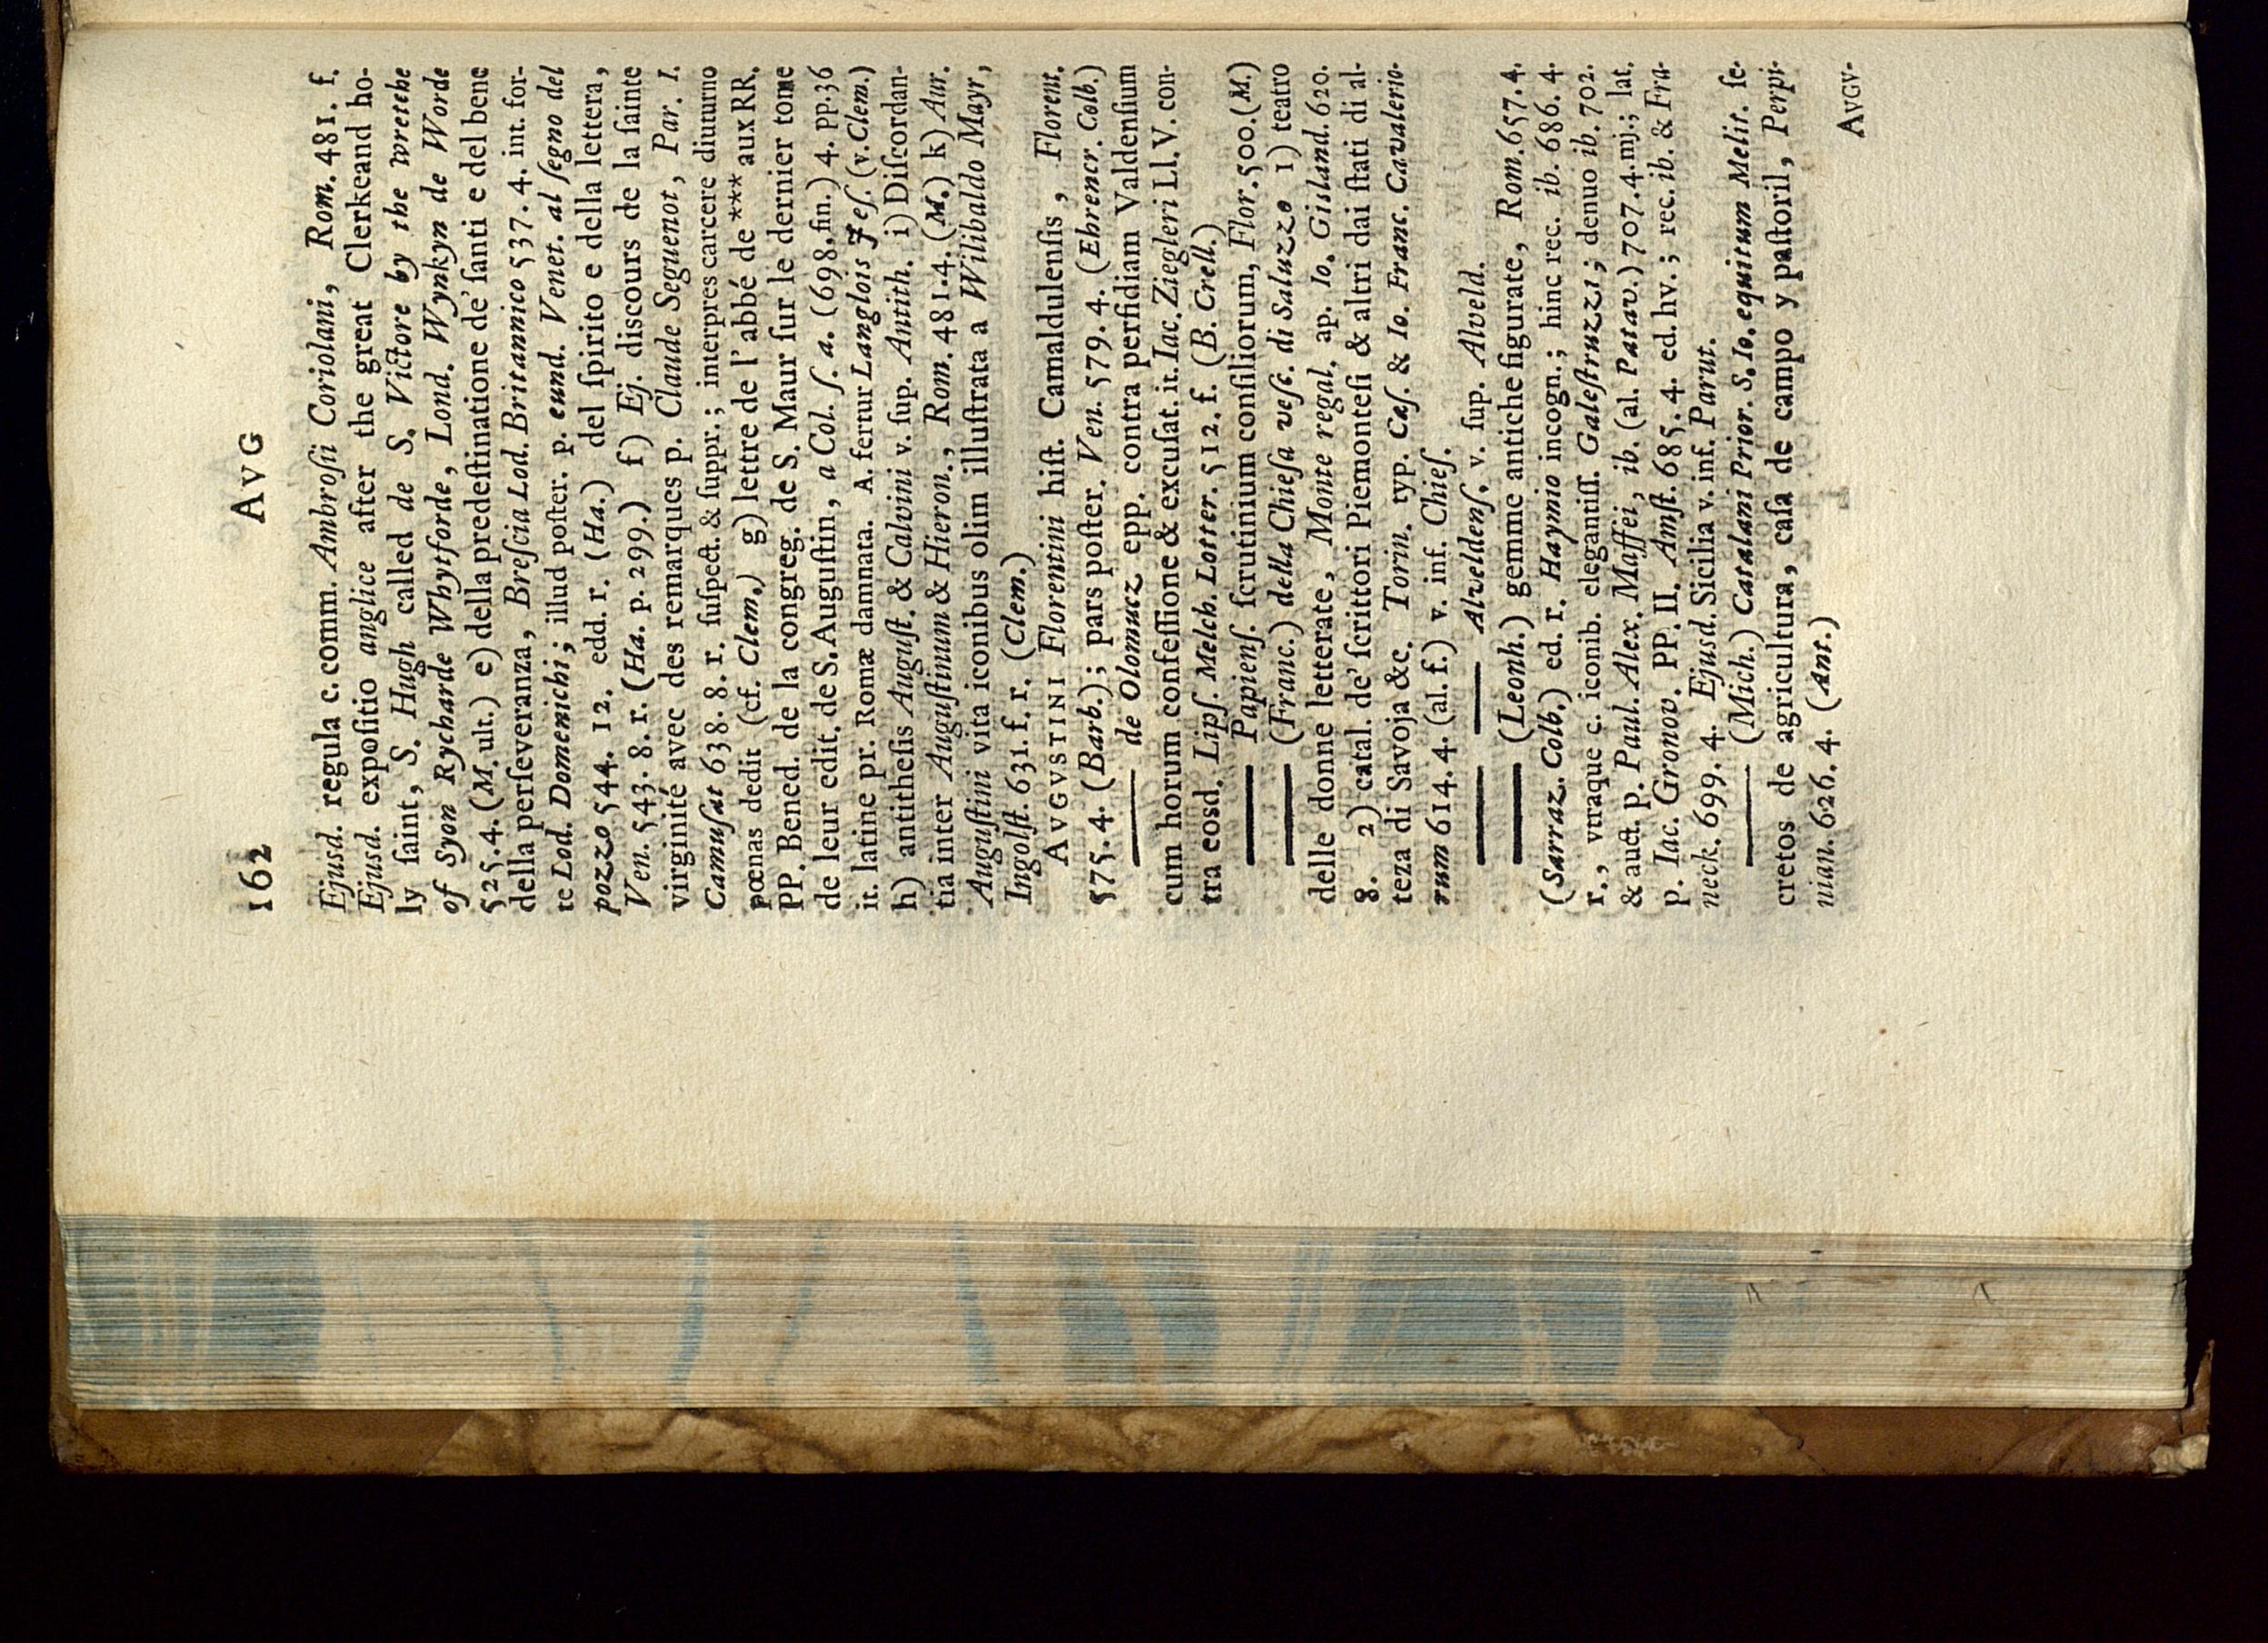 162 AVG
Ejusd. regula c. comm. Ambrosii Coriolani, Rom. 481. f.
Ejusd. expoſitio anglice after the great Clerkeand ho-
ly ſaint, S. Hugh called de S. Victore by the wretche
of Syon Rycharde Whytforde, Lond. Wynkyn de Worde
525. 4. (M. ult.) e) della predeſtinatione de' ſanti e del bene
della perſeveranza, Breſcia Lod. Britannico 537. 4. int. for-
te Lod. Domenichi; illud poſter. p. eund. Venet. al ſegno del
pozzo 544. 12. edd. r. (Ha.) del ſpirito e della lettera,
Ven. 543. 8. r. (Ha. p. 299.) f) Ej. discours de la ſainte
virginité avec des remarques p. Claude Seguenot, Par. I.
Camuſat 638. 8. r. ſuſpect. & ſuppr.; interpres carcere diuturno
pœnas dedit (cf. Clem.) g) lettre de l'abbé de *** aux RR.
PP. Bened. de la congreg. de S. Maur ſur le dernier tome
de leur edit. de S. Auguſtin, a Col. ſ. a. (698. fin.) 4. pp. 36
it. latine pr. Romæ damnata. A. fertur Langlois Jeſ. (v. Clem.)
h) antitheſis Auguſt. & Calvini v. ſup. Antith. i) Diſcordan-
tia inter Auguſtinum & Hieron., Rom. 481. 4. (M.) k) Aur.
Auguſtini vita iconibus olim illuſtrata a Wilibaldo Mayr,
Ingolſt. 631. f. r. (Clem.)
AVGVSTINI Florentini hiſt. Camaldulenſis, Florent.
575. 4. (Barb.); pars poſter. Ven. 579. 4. (Ehrencr. Colb.)
—— de Olomucz epp. contra perfidiam Valdenſium
cum horum confeſſione & excuſat. it. Iac. Ziegleri Ll. V. con-
tra eosd. Lipſ. Melch. Lotter. 512. f. (B. Crell.)
—— Papienſ. ſcrutinium conſiliorum, Flor. 500. (M.)
—— (Franc.) della Chieſa veſc. di Saluzzo 1) teatro
delle donne letterate, Monte regal, ap. Io. Gisland. 620.
8. 2) catal. de' ſcrittori Piemonteſi & altri dai ſtati di al-
teza di Savoja &c. Torin. typ. Cæſ. & Io. Franc. Cavalerio-
rum 614. 4. (al. f.) v. inf. Chieſ.
—— —— Alveldenſ. v. ſup. Alveld.
—— (Leonh.) gemme antiche figurate, Rom. 657. 4.
(Sarraz. Colb.) ed. r. Haymio incogn.; hinc rec. ib. 686. 4.
r., vtraque c. iconib. elegantiſſ. Galeſtruzzi; denuo ib. 702.
& auct. p. Paul. Alex. Maffei, ib. (al. Patav.) 707. 4. mj.; lat.
p. Iac. Gronov. PP. II. Amſt. 685. 4. ed. hv.; rec. ib. & Fra-
neck. 699. 4. Ejusd. Sicilia v. inf. Parut.
—— (Mich.) Catalani Prior. S. Io. equitum Melit. ſe-
cretos de agricultura, caſa de campo y paſtoril, Perpi-
nian. 626. 4. (Ant.)
AVGV-